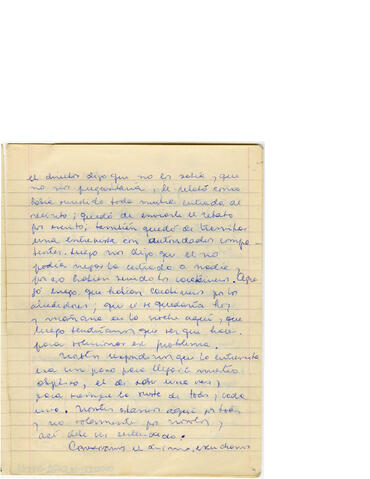 el director dijo que no los sabía, que
no nos preguntaría; le relató como
había sucedido toda nuestra entrada al
recinto; quedó de enviarle el relato
por escrito; también quedó de tramitar
una entrevista con autoridades compe-
tentes. Luego nos dijo que él no
podía negar la entrada a nadie,
por eso habían venido los carabineros. Agre-
gó luego que habían carabineros por los
alrededores; que él se quedaría hoy
y mañana en la noche aquí, que
luego tendríamos que ver que hacer
para solucionar ese problema.
Nosotros respondimos que la entrevista
era un paso para llegar a nuestro
objetivo, el de saber una vez,
para siempre la suerte de todos, cada
uno. Nosotros estamos aquí por todos
y no solamente por nosotros,
así debe ser entendido.
Conservamos el ánimo, escuchamos